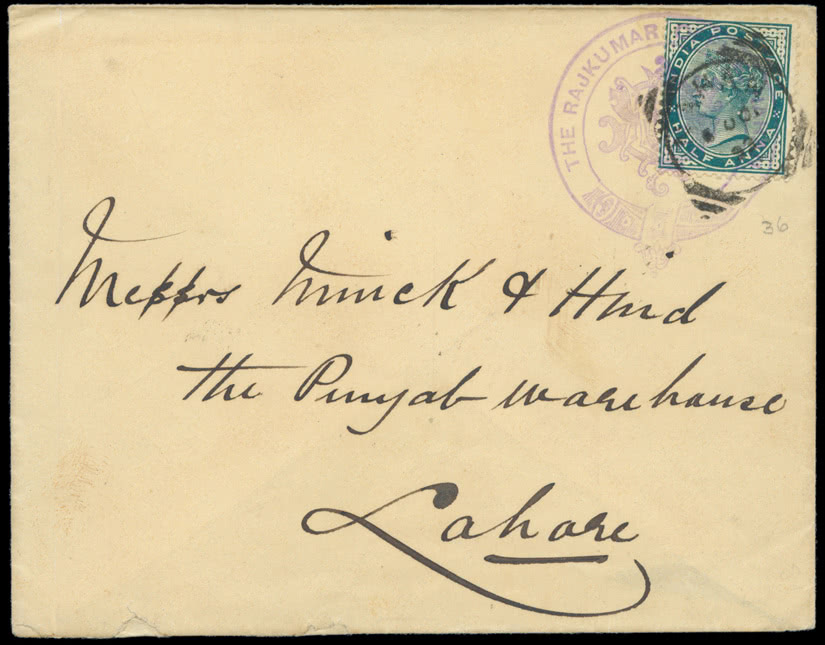 THE RAJKUMAR
INDIA POSTAGE
HALF ANNA
36
Messrs & 
the Punjab warehouse
Lahore